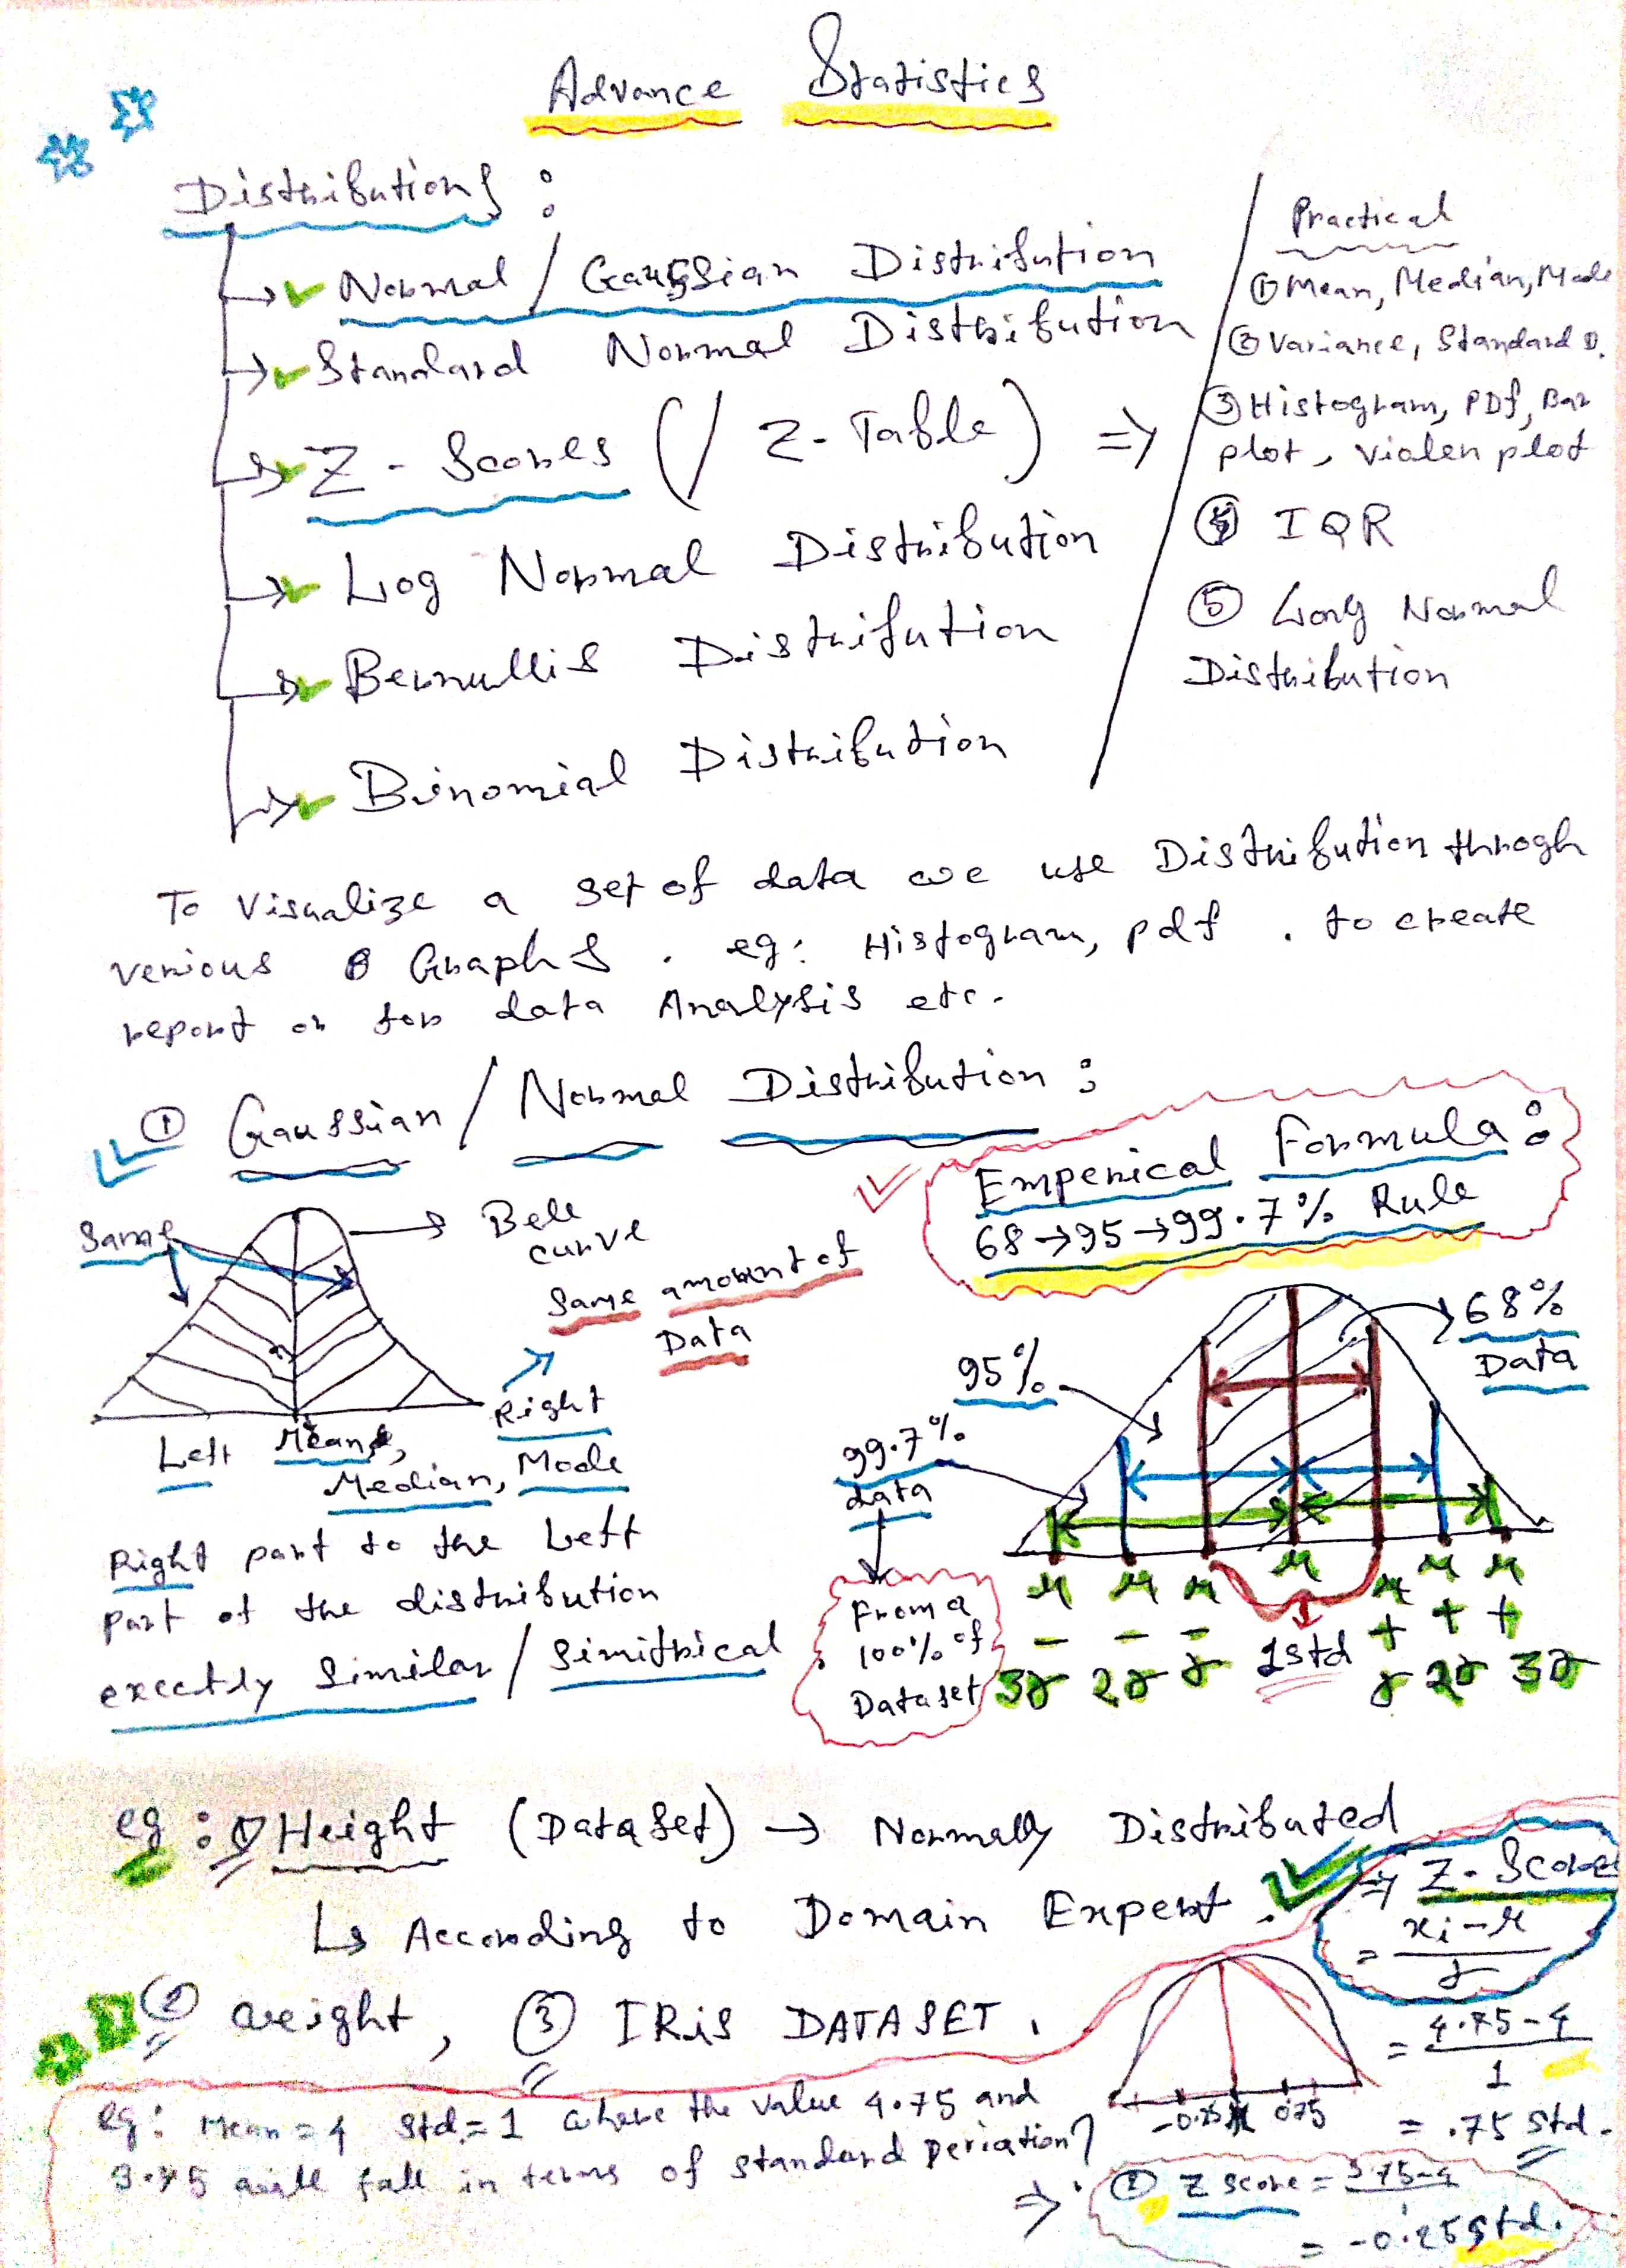 Advance Statistics
Distributions :
Normal / Gaussian Distribution
Standard Normal Distribution
Z - Scores ( / Z - Table ) =>
Log Normal Distribution
Bernullis Distribution
Binomial Distribution
Practical
① Mean, Median, Mode
② Variance, Standard D.
③ Histogram, PDf, Bar
plot, violen plot
④ IQR
⑤ Long Normal
Distribution
To visualize a set of data we use Distribution throgh
verious Graphs . eg: Histogram, pdf . to create
report or for data Analysis etc.
① Gaussian / Normal Distribution :
Same
Bell
curve
Same amount of
Data
Right
Left Mean,
Median, Mode
Right part to the Left
part of the distribution
exectly Similar / Simitrical
Emperical Formula :
68 → 95 → 99.7% Rule
68%
Data
95%
99.7%
data
From a
100% of
Dataset
μ μ μ μ μ μ μ
- - - + + +
3σ 2σ σ 1std σ 2σ 3σ
eg : ① Height (DataSet) → Normally Distributed
↳ According to Domain Expert .
② weight, ③ IRiS DATASET .
=> Z - Score
= xi - μ
σ
= 4.75 - 4
1
= .75 std.
-0.25 μ 0.75
eg: Mean = 4 Std. = 1 where the value 4.75 and
3.75 will fall in terms of standard Deriation?
=> ② Z score = 3.75-4
= -0.25 std.